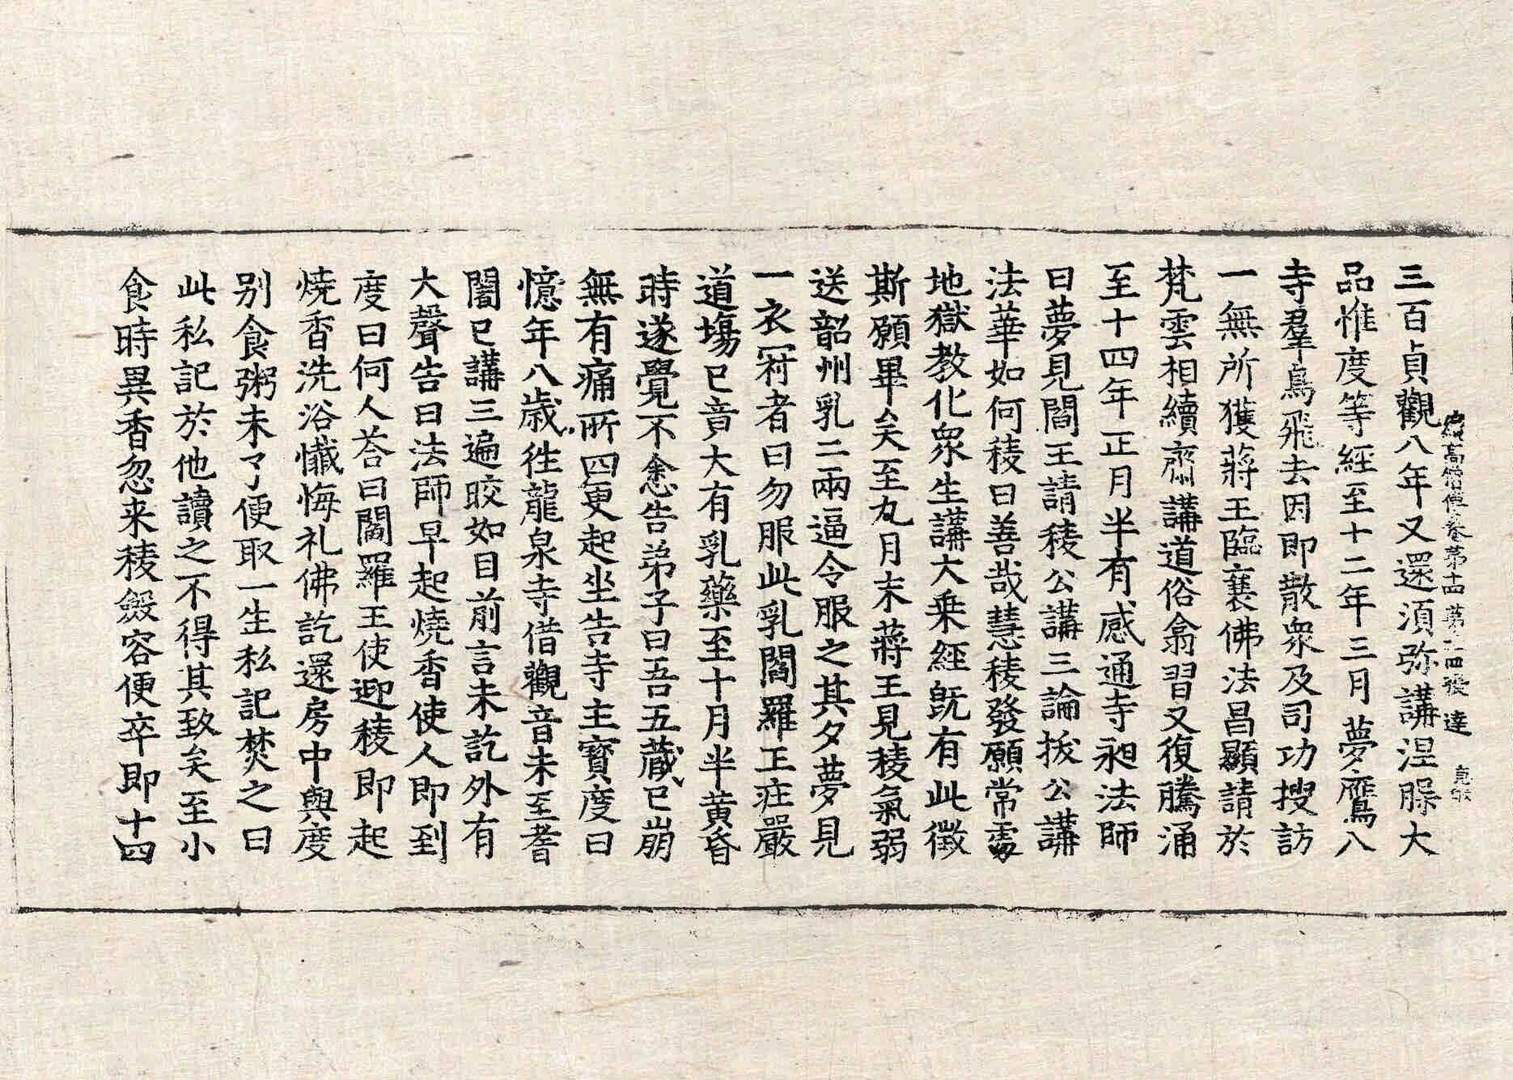 續高僧傳卷第十四 第二四張 達
三百貞觀八年又還須弥講涅槃大
品惟度等經至十二年三月夢鷹八
寺羣鳥飛去因即散衆及司功搜訪
一無所獲蔣王臨襄佛法昌顯請於
梵雲相續齋講道俗翕習又復騰涌
至十四年正月半有感通寺昶法師
曰夢見閻王請稜公講三論拔公講
法華如何稜曰善哉慧稜發願常處
地獄教化衆生講大乗經旣有此徵
斯願畢矣至九月末蔣王見稜氣弱
送韶州乳二兩逼令服之其夕夢見
一衣冠者曰勿服此乳閻羅王莊嚴
道場已竟大有乳藥至十月半黃昏
時遂覺不悆告弟子曰吾五藏已崩
無有痛所四更起坐告寺主寶度曰
憶年八歲往龍泉寺借觀音未至耆
闍已講三遍皎如目前言未訖外有
大聲告曰法師早起燒香使人即到
度曰何人荅曰閻羅王使迎稜即起
燒香洗浴懺悔礼佛訖還房中與度
别食粥未了便取一生私記焚之曰
此私記於他讀之不得其致矣至小
食時異香忽来稜斂容便卒即十四